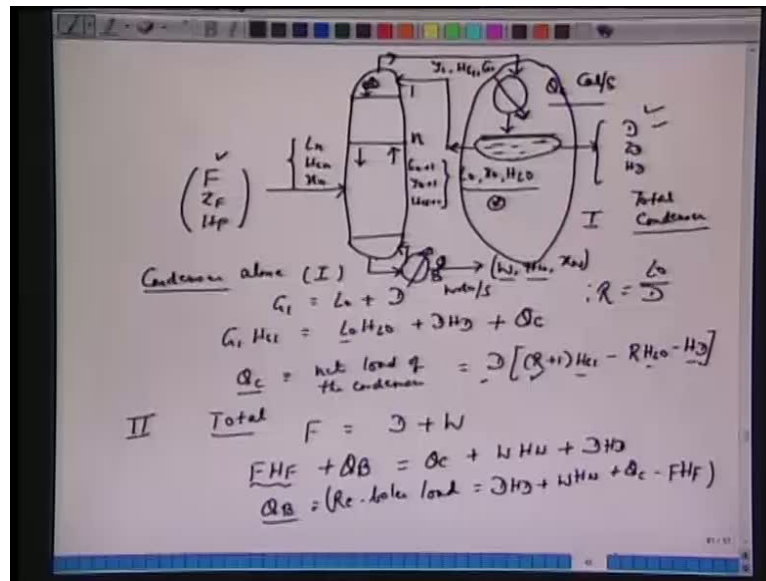 y₁, H_G1, G₁
Q_c Cal/s
1
n
F
Z_F
H_F
L_n
H_Ln
x_n
G_n+1
y_n+1
H_Gn+1
L₀, x₀, H_L0
D
Z_D
H_D
I Total Condenser
Q_B
(W, H_W, x_W)
Condenser alone (I)
G₁ = L₀ + D
: R = L₀/D
G₁ H_G1 = L₀ H_L0 + D H_D + Q_C
Q_C = net load of the condenser = D[(R+1)H_G1 - R H_L0 - H_D]
II Total F = D + W
F H_F + Q_B = Q_C + W H_W + D H_D
Q_B = (Re-boiler load = D H_D + W H_W + Q_C - F H_F)